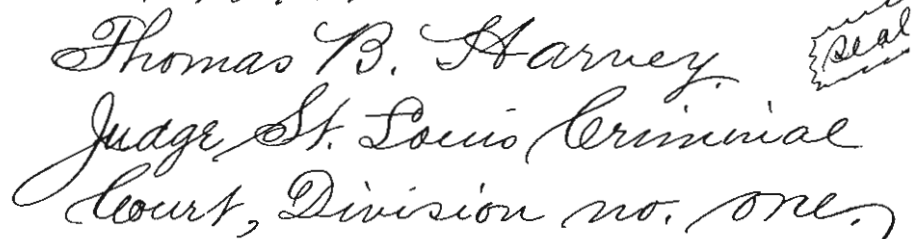 Thomas B. Harvey.
seal
Judge St. Louis Criminal
Court, Division no. one.